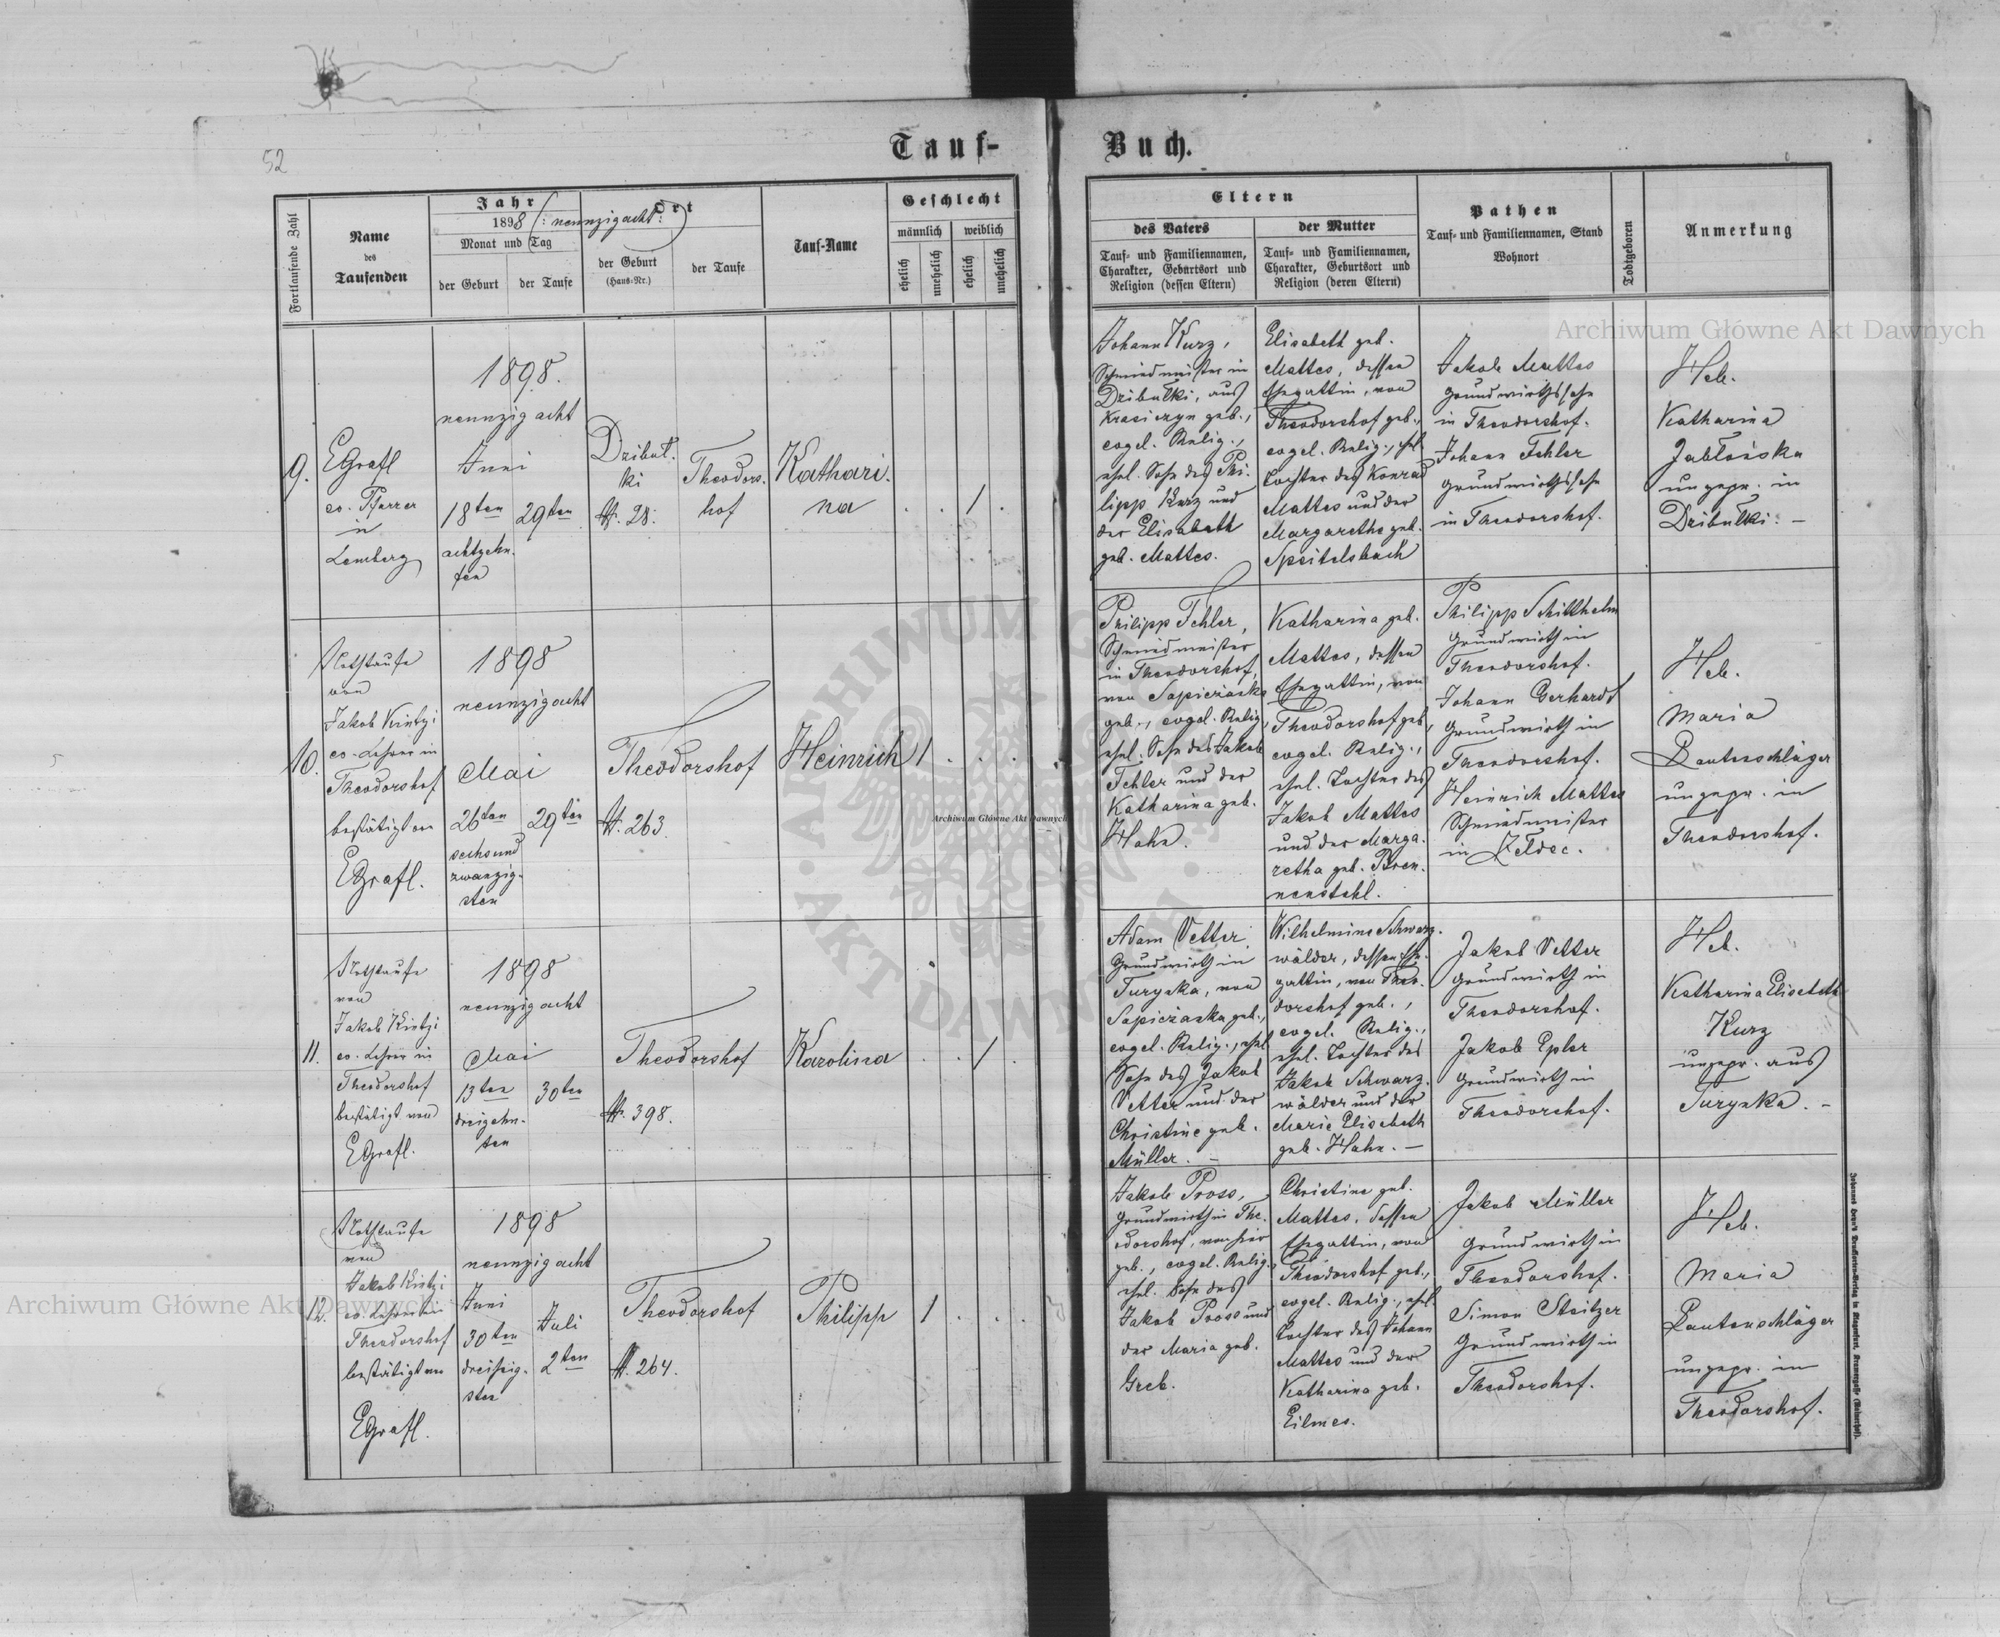 52
Tauf-Buch.
Fortlaufende Zahl
Name
des
Taufenden
Jahr
1898 (: neunzigacht :)
Monat und Tag
der Geburt
der Taufe
Ort
der Geburt
(Haus-Nr.)
der Taufe
Tauf-Name
Geschlecht
männlich
weiblich
ehelich
unehelich
ehelich
unehelich
Eltern
des Vaters
Tauf- und Familiennamen,
Charakter, Geburtsort und
Religion (dessen Eltern)
der Mutter
Tauf- und Familiennamen,
Charakter, Geburtsort und
Religion (deren Eltern)
Pathen
Tauf- und Familiennamen, Stand
Wohnort
Todtgeboren
Anmerkung
9.
EGrafl
ev. Pfarrer
in
Lemberg
1898.
neunzigacht
Juni
18ten
achtzehn-
ten
29ten
Dzibuł-
ki
Nr. 28.
Theodors-
hof
Kathari-
na
. . 1 .
Johann Kurz,
Schmiedmeister in
Dzibułki, aus
Krasiczyn geb.,
evgel. Relig.,
ehel. Sohn des Phi-
lipp Kurz und
der Elisabeth
geb. Mattes.
Elisabeth geb.
Mattes, dessen
Ehegattin, von
Theodorshof geb.,
evgel. Relig., ehel.
Tochter des Konrad
Mattes und der
Margaretha geb.
Speitelsbach
Jakob Mattes
Grundwirthssohn
in Theodorshof.
Johann Fehler
Grundwirthssohn
in Theodorshof.
Heb.
Katharina
Jabłońska
ungepr. in
Dzibułki. –
10.
Nothtaufe
von
Jakob Kintzi
ev. Lehrer in
Theodorshof
bestätigt von
EGrafl.
1898
neunzigacht
Mai
26ten
sechsund
zwanzig-
sten
29ten
Theodorshof
Nr. 263.
Heinrich
1 . . .
Philipp Fehler,
Schmiedmeister
in Theodorshof,
von Sapieżanka
geb., evgel. Relig.,
ehel. Sohn des Jakob
Fehler und der
Katharina geb.
Hahn.
Katharina geb.
Mattes, dessen
Ehegattin, von
Theodorshof geb.,
evgel. Relig.,
ehel. Tochter des
Jakob Mattes
und der Marga-
retha geb. Bren-
nenstahl.
Philipp Schillhelm
Grundwirth in
Theodorshof.
Johann Gerhardt
Grundwirth in
Theodorshof.
Heinrich Mattes
Schmiedmeister
in Żełdec.
Heb.
Maria
Lautenschläger
ungepr. in
Theodorshof.
11.
Nothtaufe
von
Jakob Kintzi
ev. Lehrer in
Theodorshof
bestätigt von
EGrafl.
1898
neunzigacht
Mai
13ten
dreizehn-
ten
30ten
Theodorshof
Nr. 398.
Karolina
. . 1 .
Adam Vetter,
Grundwirth in
Turynka, von
Sapieżanka geb.,
evgel. Relig., ehel.
Sohn des Jakob
Vetter und der
Christine geb.
Müller. –
Wilhelmine Schwarz-
wälder, dessen Ehe-
gattin, von Theo-
dorshof geb.,
evgel. Relig.,
ehel. Tochter des
Jakob Schwarz-
wälder und der
Marie Elisabeth
geb. Hahn. –
Jakob Vetter
Grundwirth in
Theodorshof.
Jakob Epler
Grundwirth in
Theodorshof.
Heb.
Katharina Elisabeth
Kurz
ungepr. aus
Turynka. –
12.
Nothtaufe
von
Jakob Kintzi
ev. Lehrer in
Theodorshof
bestätigt von
EGrafl.
1898
neunzigacht
Juni
30ten
dreißig-
sten
Juli
2ten
Theodorshof
Nr. 264.
Philipp
1 . . .
Jakob Pross,
Grundwirth in The-
odorshof, von hier
geb., evgel. Relig.,
ehel. Sohn des
Jakob Pross und
der Maria geb.
Greb.
Christine geb.
Mattes, dessen
Ehegattin, von
Theodorshof geb.,
evgel. Relig., ehel.
Tochter des Johann
Mattes und der
Katharina geb.
Eilmes.
Jakob Müller
Grundwirth in
Theodorshof.
Simon Steitzer
Grundwirth in
Theodorshof.
Heb.
Maria
Lautenschläger
ungepr. in
Theodorshof.
Archiwum Główne Akt Dawnych
Archiwum Główne Akt Dawnych
Archiwum Główne Akt Dawnych